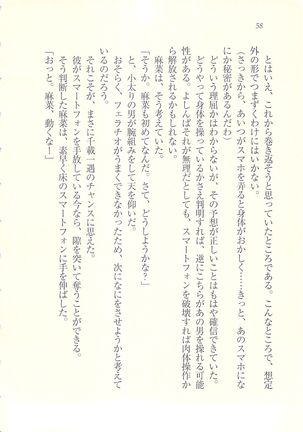 58
とはいえ、これから巻き返そうと思っていたところである。こんなところで、想定
外の形でつまずくわけにはいかない。
（さっきから、あいつがスマホを弄ると身体がおかしく……きっと、あのスマホにな
にか秘密があるんだわ）
どういう理屈かはわからないが、その予想が正しいことはもはや確信できていた。
どうやって身体を操っているかさえ判明すれば、逆にこちらがあの男を操れる可能
性がある。よしんばそれが無理だとしても、スマートフォンを破壊すれば肉体操作か
ら解放されるかもしれない。
麻菜は、そう考えていた。
「そうか、麻菜も初めてなんだ。さて、どうしようかな？」
と、小太りの男が腕組みをして天を仰いだ。
おそらく、フェラチオがうまくできなかったため、次になにをさせようかと考えて
いるのだろう。
それこそが、まさに千載一遇のチャンスに思えた。
彼がスマートフォンを手放している今なら、隙を突いて奪うことができる。
そう判断した麻菜は、素早く床のスマートフォンに手を伸ばした。
「おっと。麻菜、動くな！」